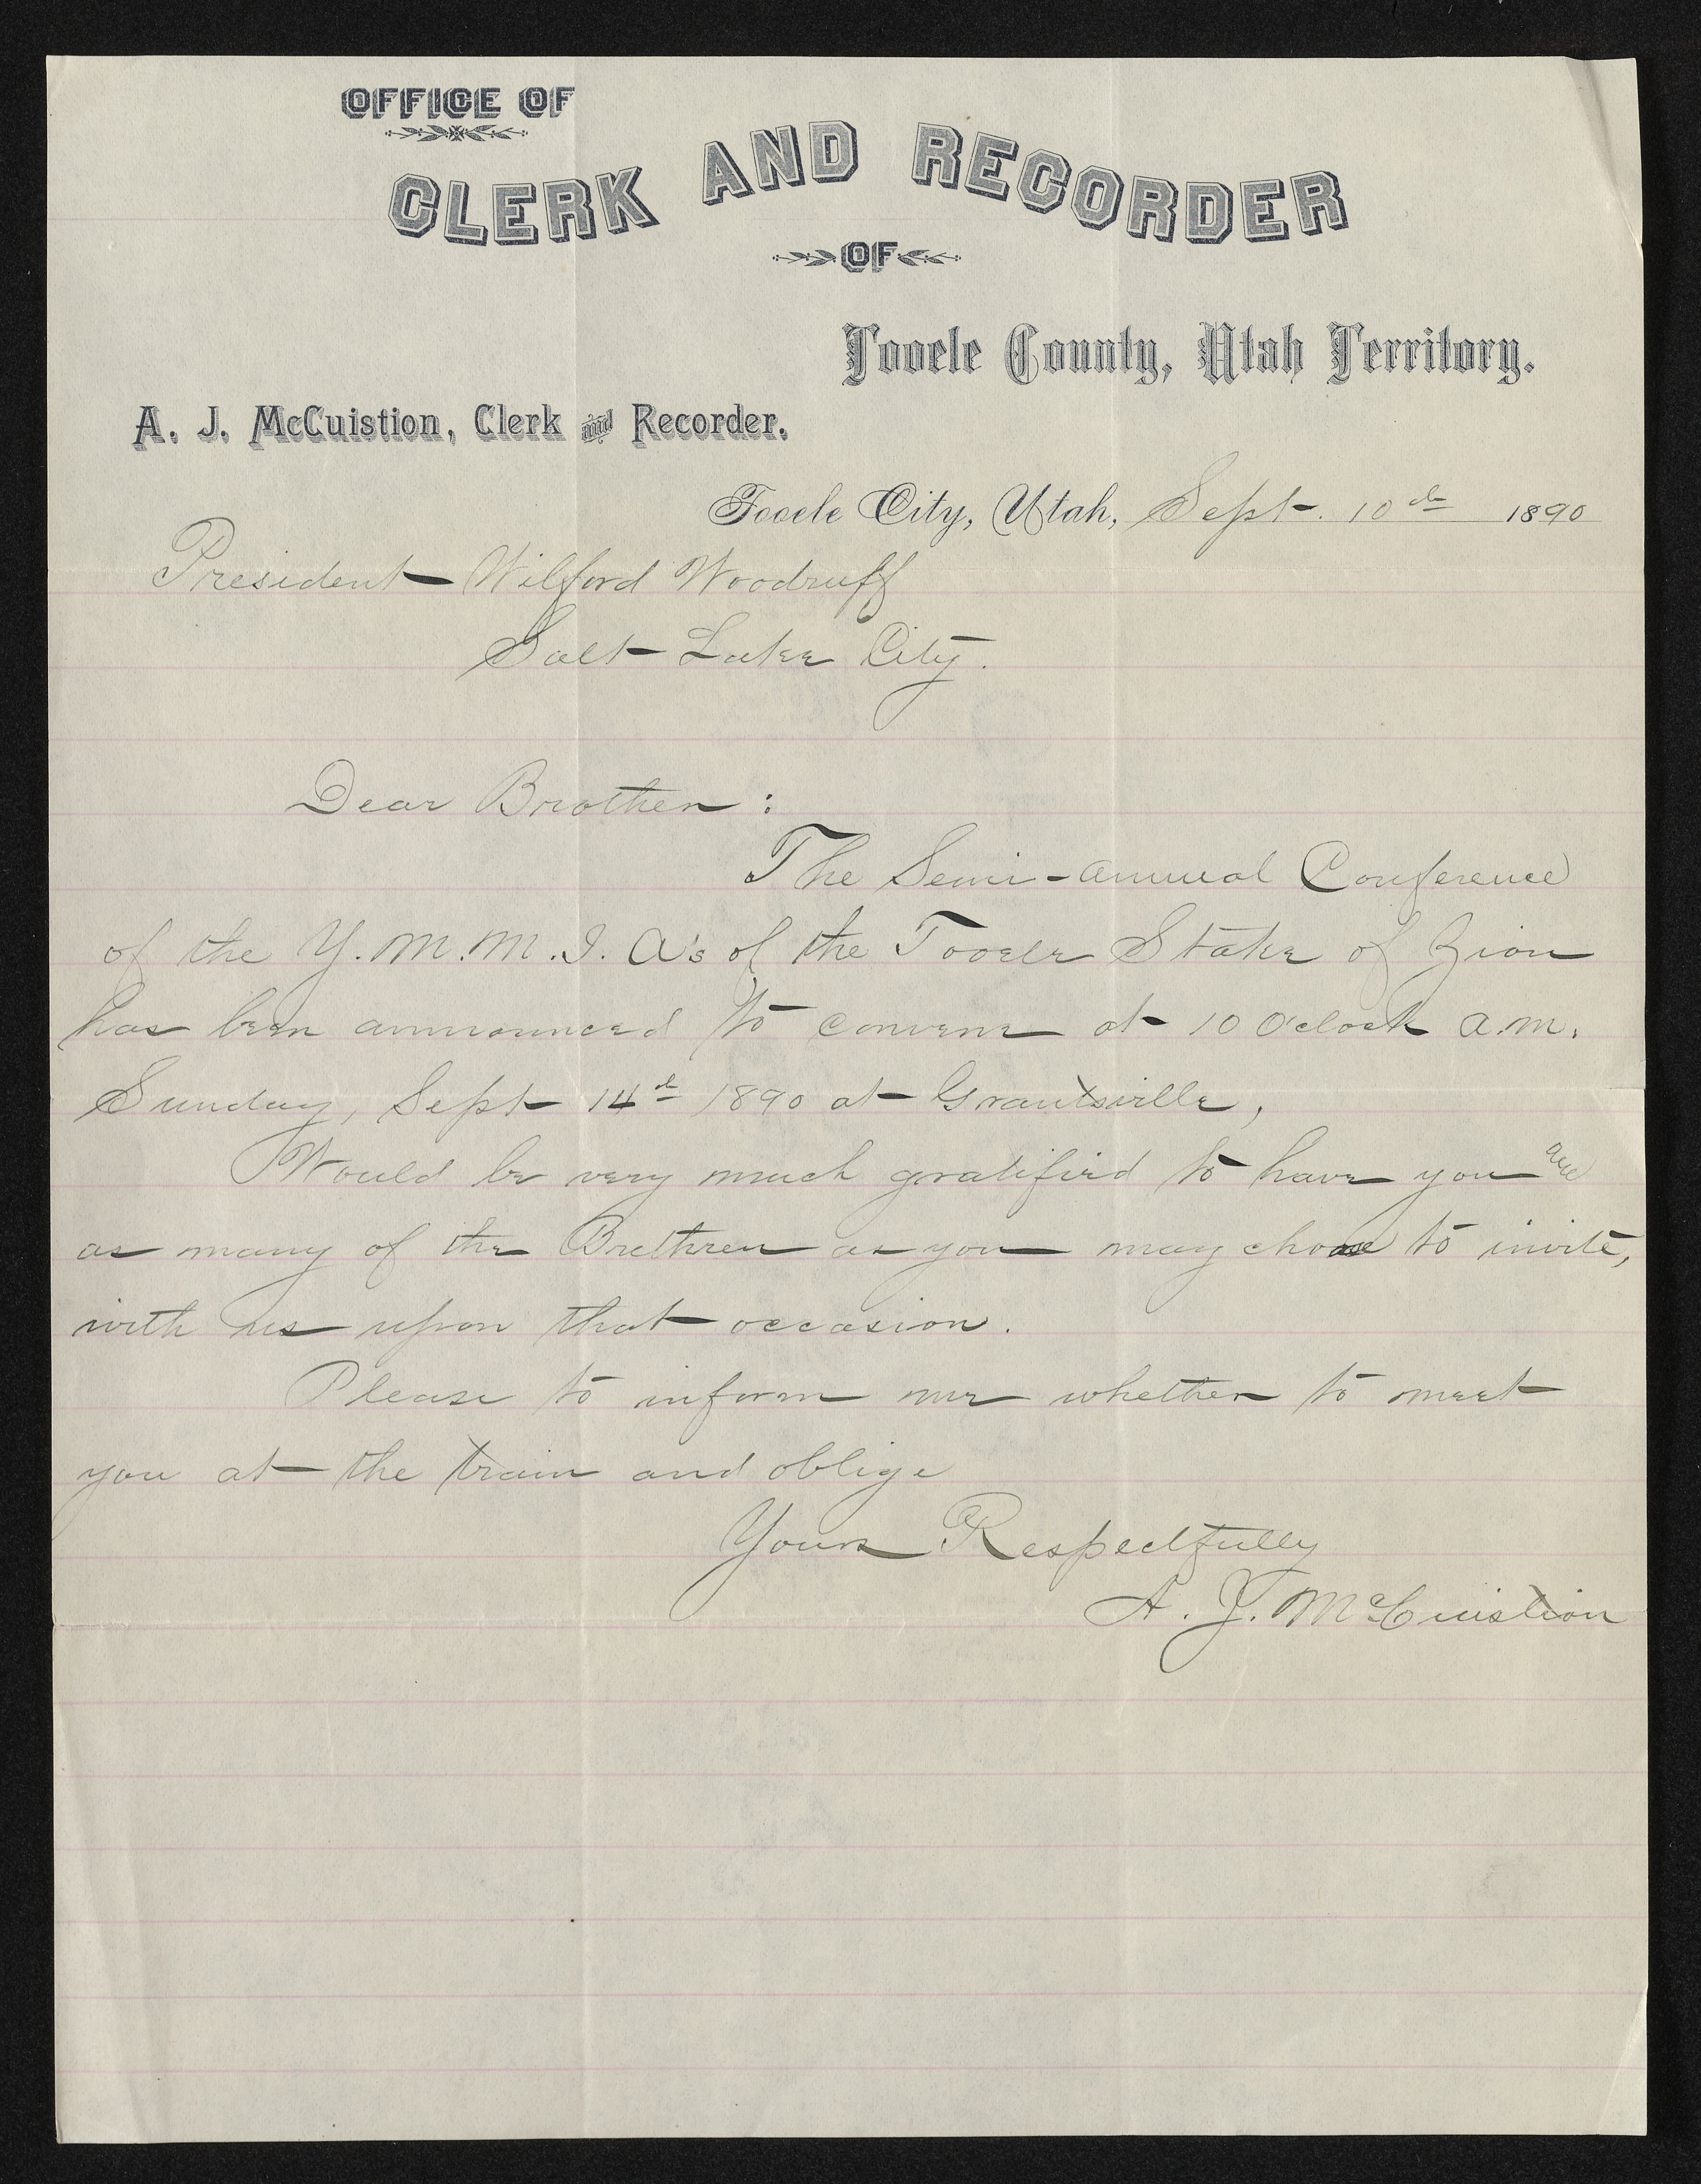 OFFICE OF
CLERK AND RECORDER
OF
Tooele County, Utah Territory.
A. J. McCuistion, Clerk and Recorder.
Tooele City, Utah, Sept. 10th 1890
President Wilford Woodruff
Salt Lake City.
Dear Brother :
The Semi-annual Conference
of the Y.M.M.I.A's of the Tooele Stake of Zion
has been announced to convene at 10 O'clock a.m.
Sunday, Sept 14th 1890 at Grantsville,
Would be very much gratified to have you and
as many of the Brethren as you may choose to invite,
with us upon that occasion.
Please to inform me whether to meet
you at the train and oblige
Yours Respectfully
A. J. McCuistion